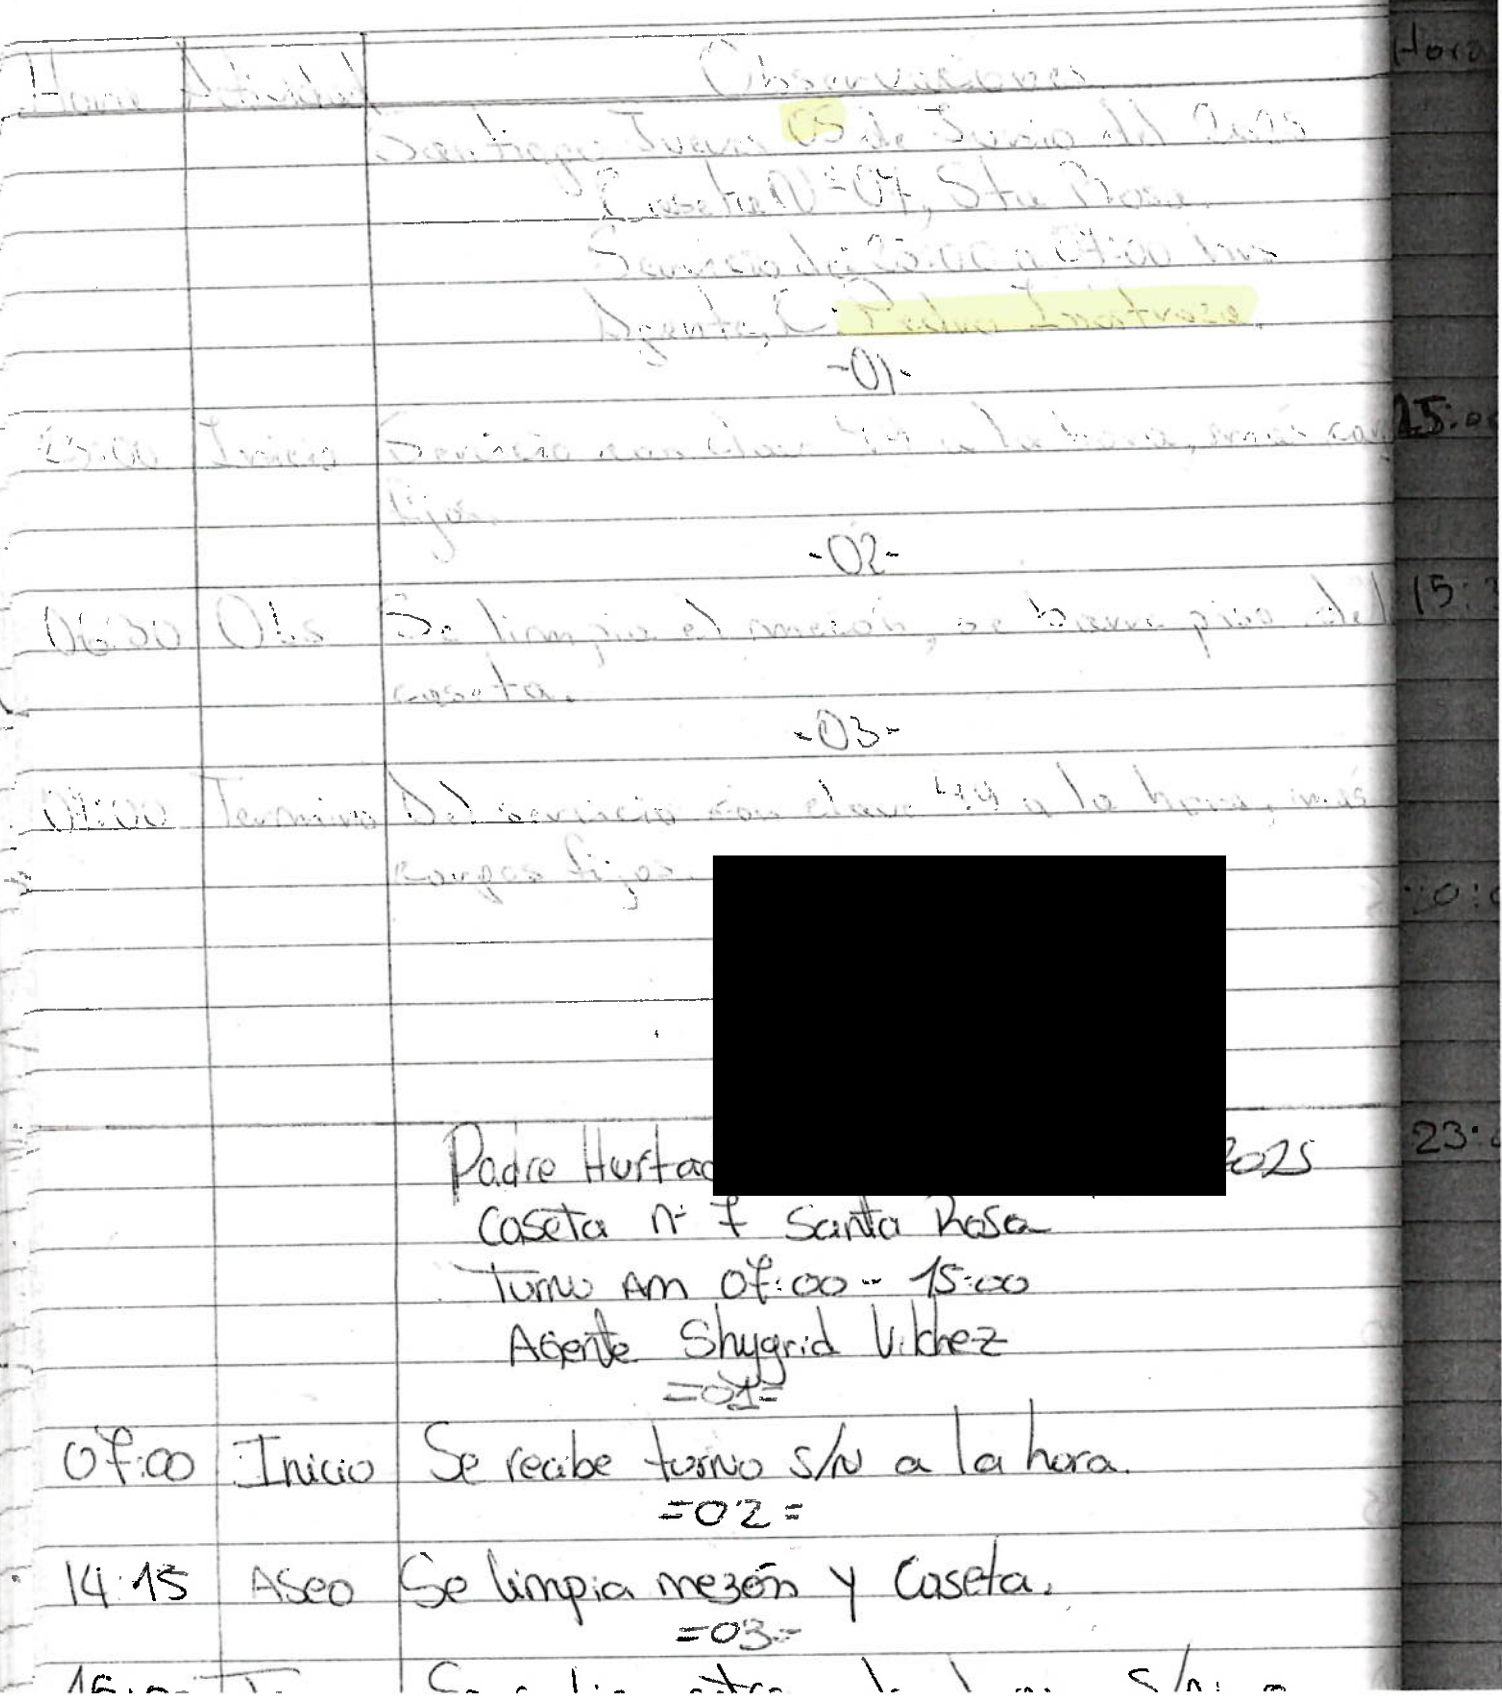 Hora Actividad Observaciones
Santiago Jueves 05 de Junio del 2025
Caseta N°-07, Sta Rosa.
Servicio de 23:00 a 07:00 hrs
Agente, C. Pedro
-01-
23:00 Inicio Servicio con clave 44 a la hora, más car
fijos.
-02-
06:30 Obs Se limpia el mesón, se barre piso del
caseta.
-03-
07:00 Termino Del servicio con clave 44 a la hora, más
cargos fijos.
Padre Hurtad 2025
Caseta n° 7 Santa Rosa
Turno AM 07:00 - 15:00
Agente Shygrid Vilchez
=01=
07:00 Inicio Se recibe turno s/N a la hora.
=02=
14:15 Aseo Se limpia mezón y Caseta.
=03=
Hora
15:
23: